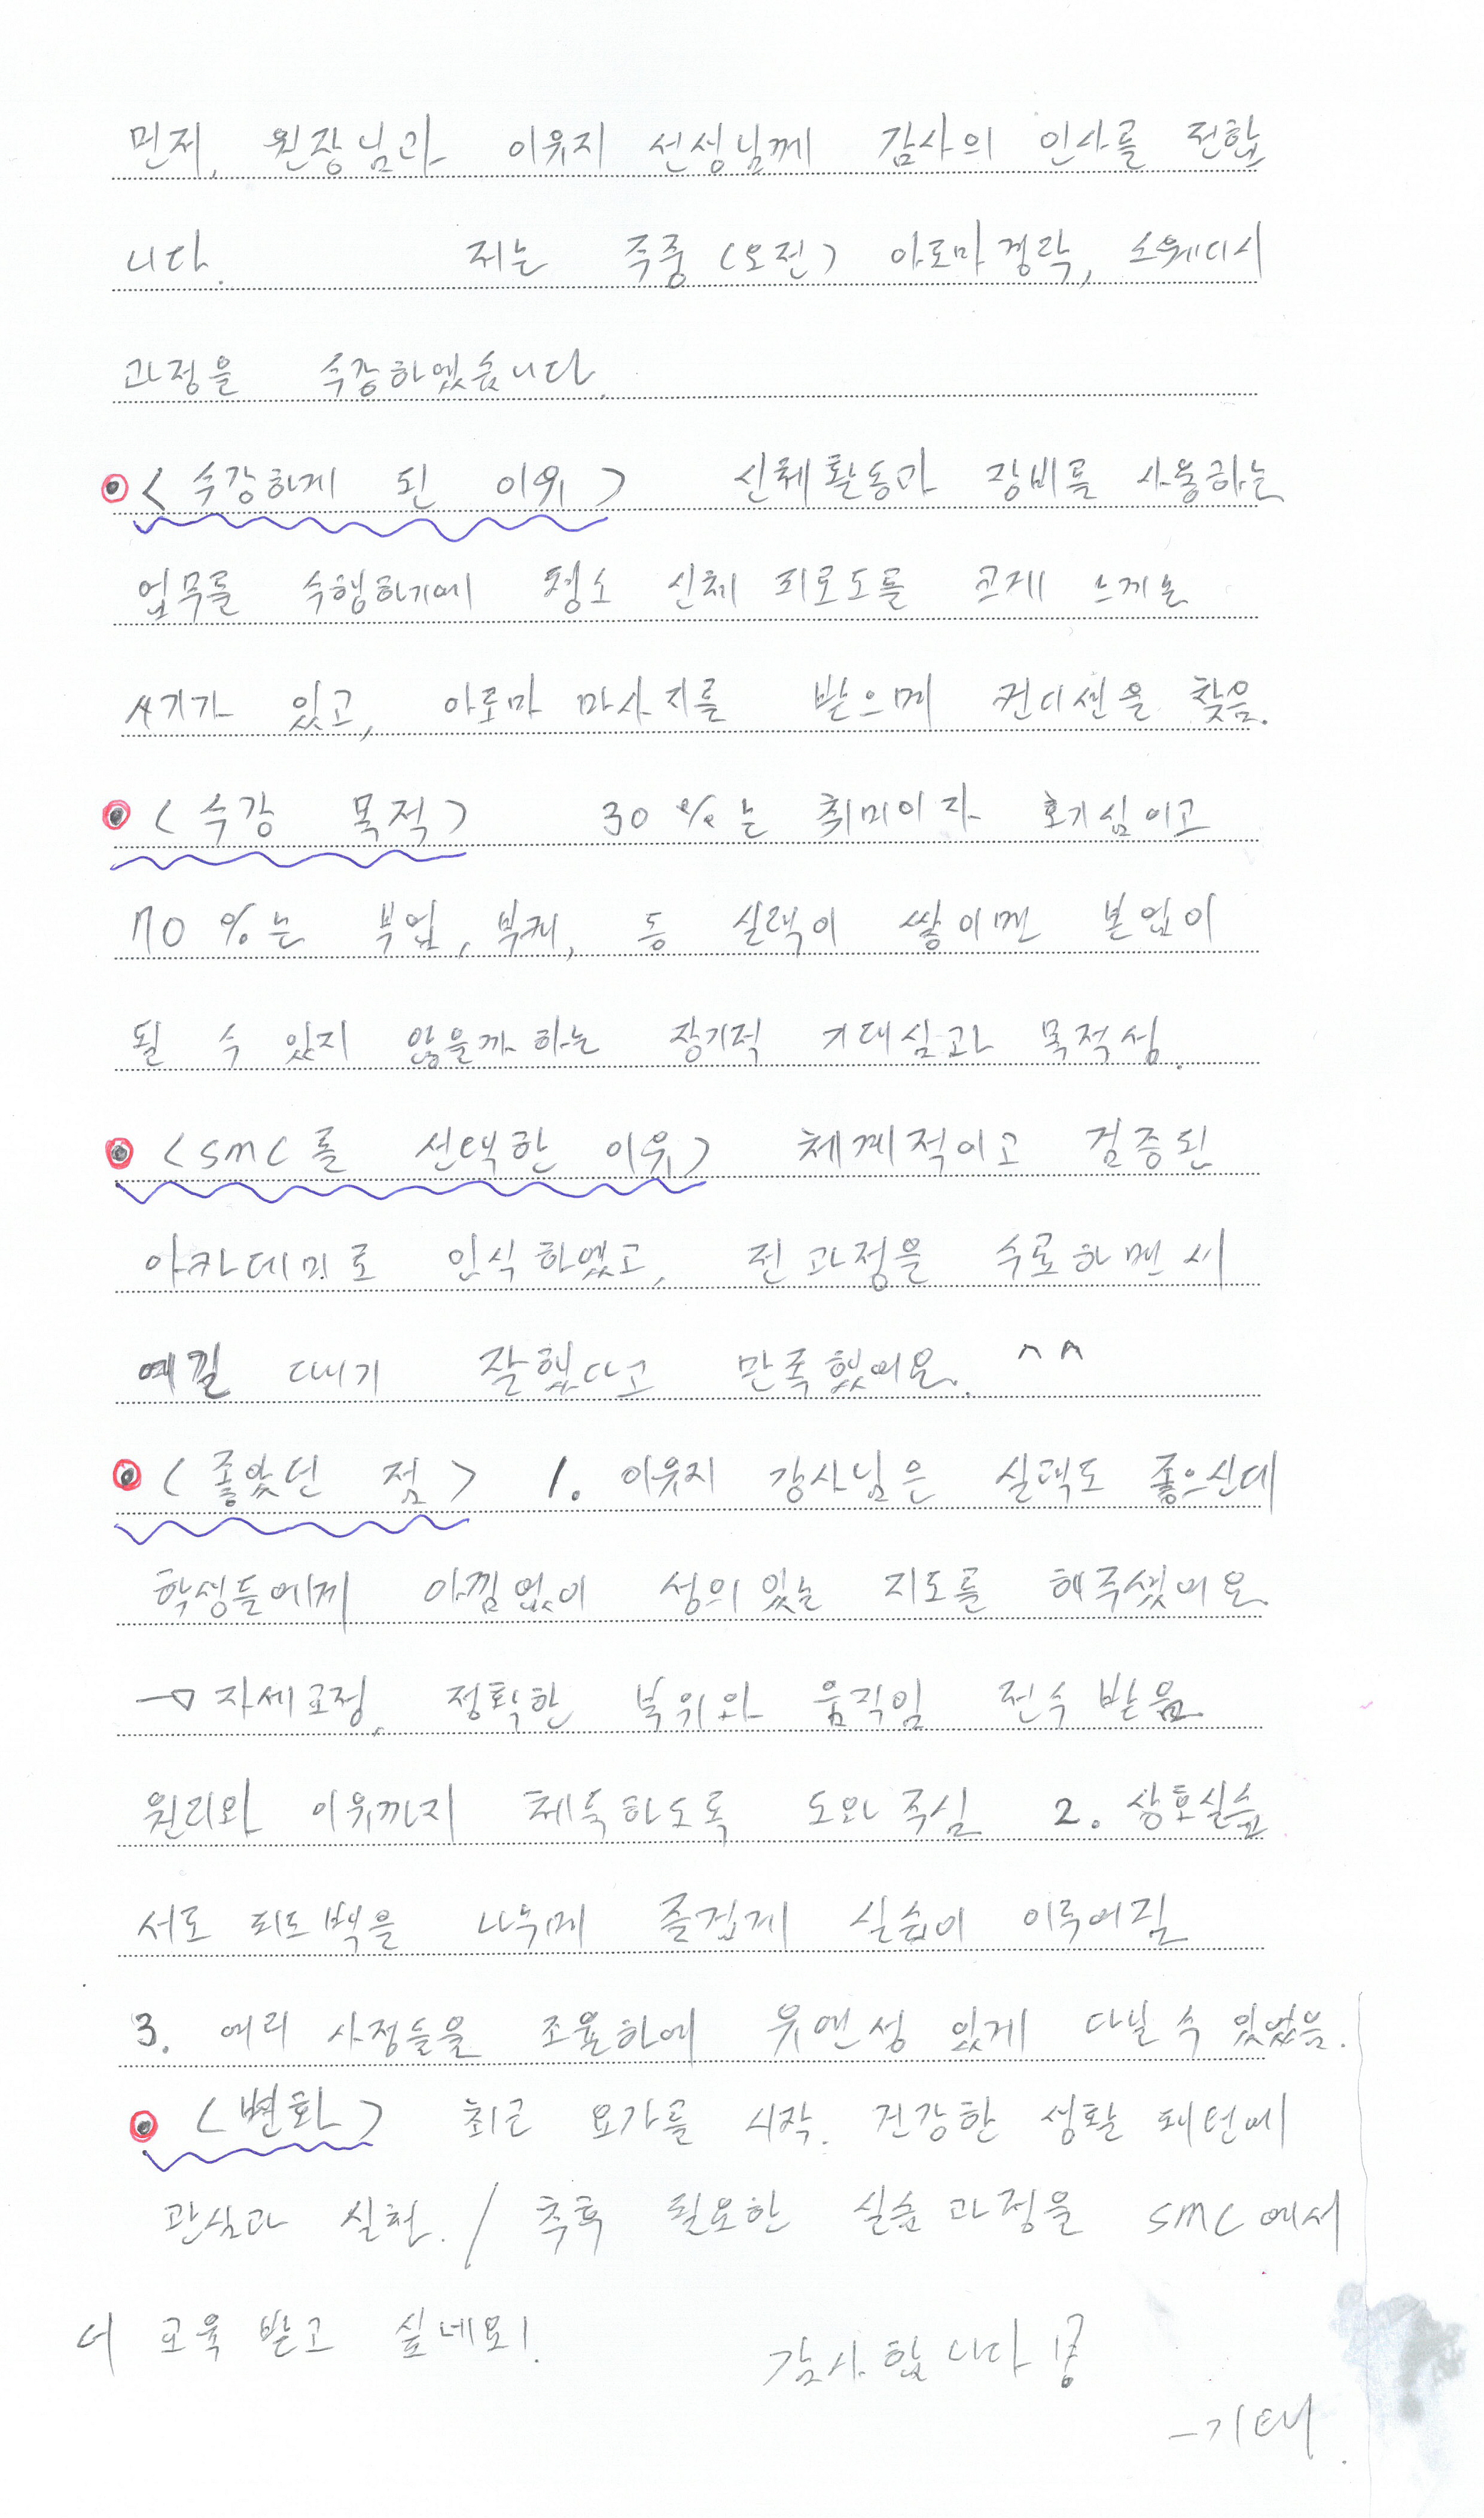 먼저, 원장님과 이유지 선생님께 감사의 인사를 전합
니다. 저는 주중(오전) 아로마경락, 스웨디시
과정을 수강하였습니다.
<수강하게 된 이유> 신체활동과 장비를 사용하는
업무를 수행하기에 평소 신체 피로도를 크게 느끼는
시기가 있고, 아로마 마사지를 받으며 컨디션을 찾음.
<수강 목적> 30%는 취미이자 호기심이고
70%는 부업, 부캐, 등 실력이 쌓이면 본업이
될 수 있지 않을까하는 장기적 기대심과 목적성.
<SMC를 선택한 이유> 체계적이고 검증된
아카데미로 인식하였고, 전과정을 수료하면서
여길 다니기 잘했다고 만족했어요. ^^
<좋았던 점> 1. 이유지 강사님은 실력도 좋으신데
학생들에게 아낌없이 성의있는 지도를 해주셨어요.
→ 자세교정, 정확한 부위와 움직임 전수받음.
원리와 이유까지 체득하도록 도와주심 2. 상호실습
서로 피드백을 나누며 즐겁게 실습이 이루어짐
3. 여러 사정들을 조율하여 유연성 있게 다닐 수 있었음.
<변화> 최근 요가를 시작. 건강한 생활 패턴에
관심과 실천. / 추후 필요한 실습과정을 SMC에서
더 교육받고 싶네요!
감사합니다!
-기태.